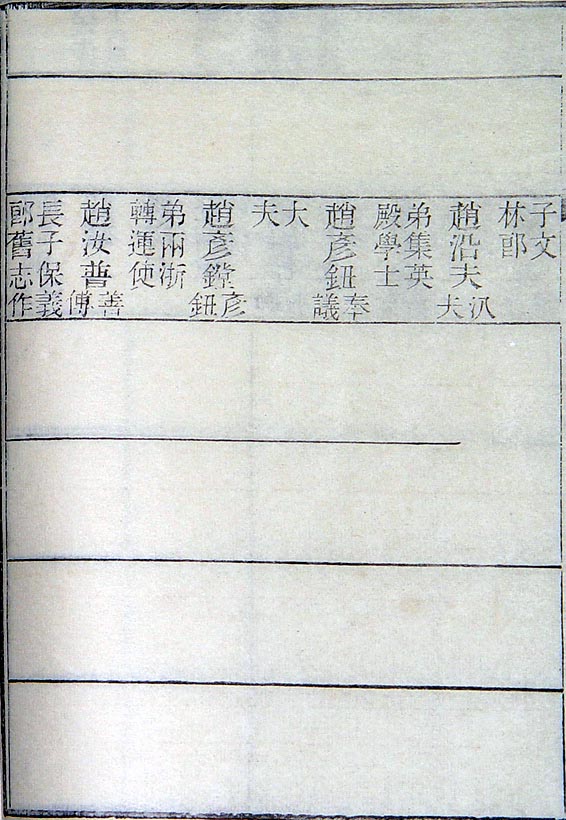 子文
林郎
趙沿夫
汃夫
弟集英
殿學士
趙彥鈕
奉
議
大
夫
趙彥鏜
彥
鈕
弟兩浙
轉運使
趙汝普
善
傅
長子保義
郎舊志作